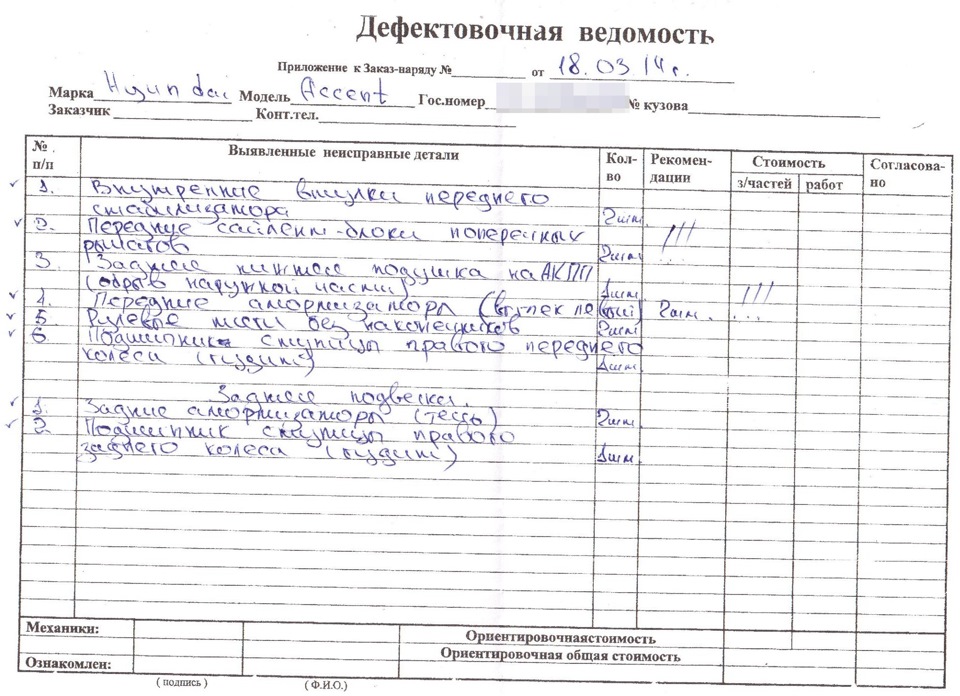 Дефектовочная ведомость
Приложение к Заказ-наряду № от 18.03 14г.
Марка Hyundai Модель Accent Гос.номер № кузова
Заказчик Конт.тел.
№ п/п Выявленные неисправные детали Кол-во Рекомендации Стоимость з/частей работ Согласовано
1. Внутренние втулки переднего
стабилизатора 2шт.
2. Передние сайлент-блоки поперечных !!!
рычагов 2шт.
3. Заднее нижнее подушка на АКПП
(обрыв наружной части) 1шт. !!!
4. Передние амортизаторы (вытек левый) 2шт. ...
5. Рулевые тяги без наконечников 2шт.
6 Подшипник ступицы правого переднего
колеса (гудит) 1шт.
Заднее подвеска.
1. Задние амортизаторы (течь) 2шт.
2. Подшипник ступицы правого
заднего колеса (гудит) 1шт.
Механики: Ориентировочнаястоимость
Ориентировочная общая стоимость
Ознакомлен:
( подпись ) ( Ф.И.О.)